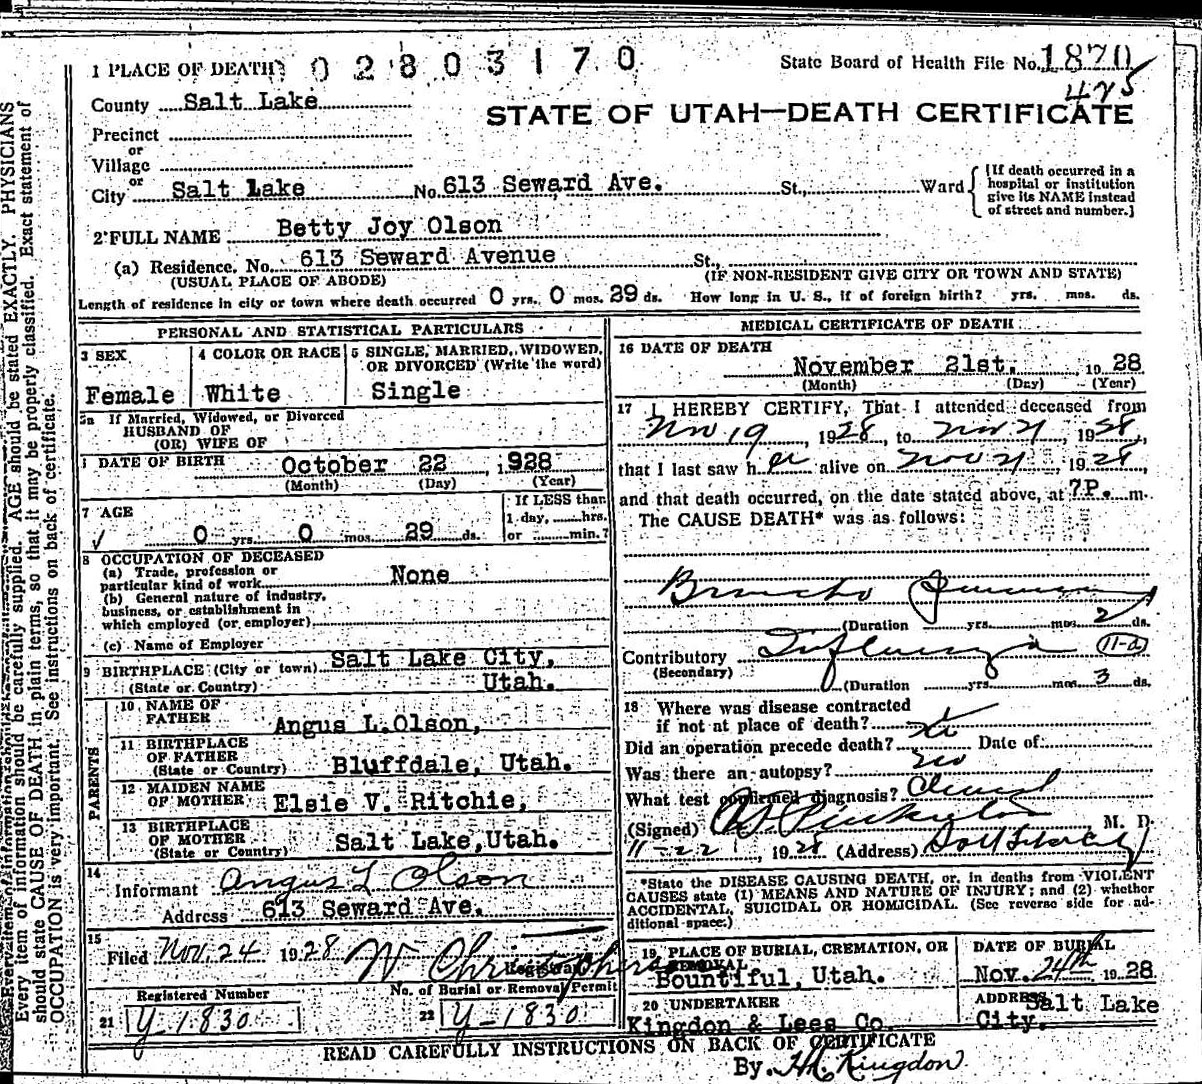 1 PLACE OF DEATH 02803170 State Board of Health File No. 1870
475
County Salt Lake
STATE OF UTAH—DEATH CERTIFICATE
Precinct
or
Village
or
City Salt Lake No. 613 Seward Ave. St., Ward
[If death occurred in a hospital or institution give its NAME instead of street and number.]
2 FULL NAME Betty Joy Olson
(a) Residence. No. 613 Seward Avenue St.,
(USUAL PLACE OF ABODE) (IF NON-RESIDENT GIVE CITY OR TOWN AND STATE)
Length of residence in city or town where death occurred 0 yrs. 0 mos. 29 ds. How long in U. S., if of foreign birth? yrs. mos. ds.
PERSONAL AND STATISTICAL PARTICULARS
3 SEX
Female
4 COLOR OR RACE
White
5 SINGLE, MARRIED, WIDOWED, OR DIVORCED (Write the word)
Single
5a If Married, Widowed, or Divorced
HUSBAND OF
(OR) WIFE OF
DATE OF BIRTH October 22, 1928
(Month) (Day) (Year)
7 AGE
0 yrs. 0 mos. 29 ds.
If LESS than
1 day, hrs.
or min.?
8 OCCUPATION OF DECEASED
(a) Trade, profession or
particular kind of work None
(b) General nature of industry,
business, or establishment in
which employed (or employer)
(c) Name of Employer
9 BIRTHPLACE (City or town) Salt Lake City,
(State or Country) Utah.
PARENTS
10 NAME OF
FATHER Angus L. Olson,
11 BIRTHPLACE
OF FATHER
(State or Country) Bluffdale, Utah.
12 MAIDEN NAME
OF MOTHER Elsie V. Ritchie,
13 BIRTHPLACE
OF MOTHER
(State or Country) Salt Lake, Utah.
14
Informant Angus L Olson
Address 613 Seward Ave.
15
Filed Nov. 24 1928 W Christophers
Registrar
Registered Number
21 Y-1830
No. of Burial or Removal Permit
22 Y-1830
MEDICAL CERTIFICATE OF DEATH
16 DATE OF DEATH
November 21st. 1928
(Month) (Day) (Year)
17 I HEREBY CERTIFY, That I attended deceased from
Nov 19, 1928, to Nov 21, 1928,
that I last saw her alive on Nov 21, 1928,
and that death occurred, on the date stated above, at 7P. m.
The CAUSE DEATH* was as follows:
Broncho Pneumonia
(Duration yrs. mos. 2 ds.
Contributory Influenza 11-a
(Secondary)
(Duration yrs. mos. 3 ds.
18 Where was disease contracted
if not at place of death?
Did an operation precede death? Date of
Was there an autopsy? no
What test confirmed diagnosis? Clinical
(Signed) M. D.
11-22, 1928 (Address) Salt Lake City
*State the DISEASE CAUSING DEATH, or, in deaths from VIOLENT
CAUSES state (1) MEANS AND NATURE OF INJURY; and (2) whether
ACCIDENTAL, SUICIDAL OR HOMICIDAL. (See reverse side for ad-
ditional space.)
19 PLACE OF BURIAL, CREMATION, OR
REMOVAL
Bountiful, Utah.
DATE OF BURIAL
Nov. 24th 1928
20 UNDERTAKER
Kingdon & Lees Co.
ADDRESS Salt Lake
City.
READ CAREFULLY INSTRUCTIONS ON BACK OF CERTIFICATE
By. Kingdon
Every item of information should be carefully supplied. AGE should be stated EXACTLY. PHYSICIANS
should state CAUSE OF DEATH in plain terms, so that it may be properly classified. Exact statement of
OCCUPATION is very important. See instructions on back of certificate.